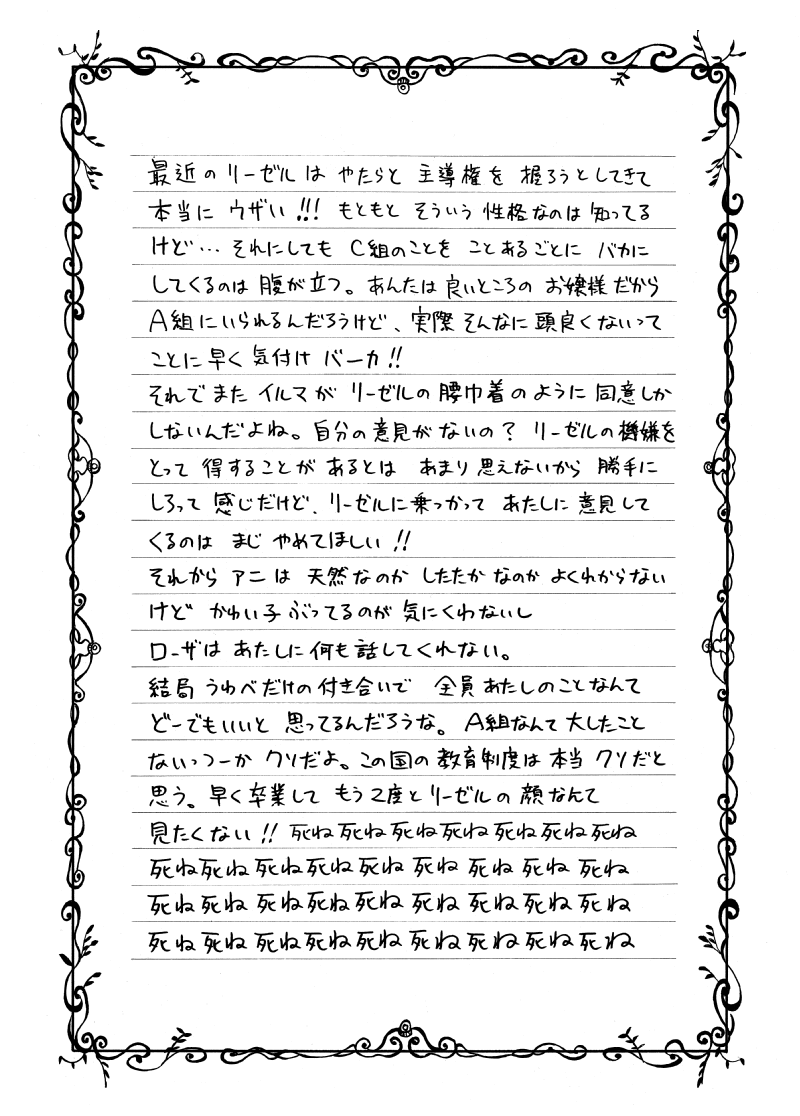 最近の リーゼル は やたらと 主導権 を 握ろうとしてきて
本当に ウザい!!! もともと そういう 性格なのは 知ってる
けど… それにしても C組のことを ことあるごとに バカに
してくるのは 腹が立つ。あんたは 良いところの お嬢様だから
A組にいられるんだろうけど、実際 そんなに 頭良くないって
ことに 早く 気付け バーカ!!
それでまた イルマが リーゼルの 腰巾着のように 同意しか
しないんだよね。自分の意見がないの? リーゼルの機嫌を
とって 得することが あるとは あまり 思えないから 勝手に
しろって 感じだけど、リーゼルに乗っかって あたしに 意見して
くるのは まじ やめてほしい!!
それから アニ は 天然なのか したたか なのか よくわからない
けど かわい子 ぶってるのが 気にくわないし
ローザは あたしに 何も 話してくれない。
結局 うわべだけの付き合いで 全員 あたしのことなんて
どーでもいいと 思ってるんだろうな。A組なんて 大したこと
ないっつーか クソだよ。この国の 教育制度は 本当 クソだと
思う。早く 卒業して もう 2度と リーゼルの 顔なんて
見たくない!! 死ね 死ね 死ね 死ね 死ね 死ね 死ね
死ね 死ね 死ね 死ね 死ね 死ね 死ね 死ね 死ね
死ね 死ね 死ね 死ね 死ね 死ね 死ね 死ね 死ね
死ね 死ね 死ね 死ね 死ね 死ね 死ね 死ね 死ね